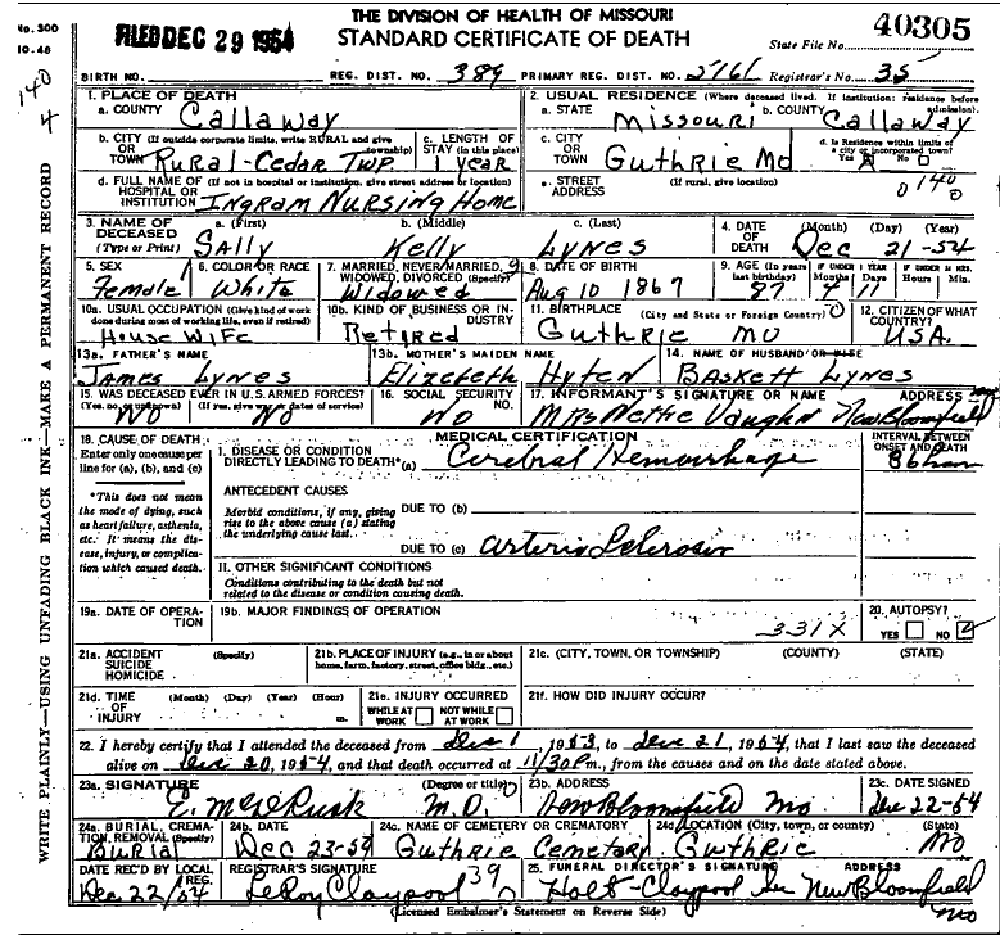 THE DIVISION OF HEALTH OF MISSOURI
No. 300
10-48
FILED DEC 29 1954
STANDARD CERTIFICATE OF DEATH
State File No. 40305
BIRTH NO. REG. DIST. NO. 389 PRIMARY REG. DIST. NO. 5761 Registrar's No. 35
140
4
1. PLACE OF DEATH
a. COUNTY Callaway
2. USUAL RESIDENCE (Where deceased lived. If institution: residence before admission).
a. STATE Missouri b. COUNTY Callaway
b. CITY (If outside corporate limits, write RURAL and give township) OR TOWN Rural-Cedar Twp.
c. LENGTH OF STAY (in this place) 1 year
c. CITY OR TOWN Guthrie Mo
d. Is Residence within limits of a city or incorporated town? Yes X No
d. FULL NAME OF (If not in hospital or institution, give street address or location) HOSPITAL OR INSTITUTION Ingram Nursing Home
e. STREET ADDRESS (If rural, give location) 0140
0
3. NAME OF DECEASED (Type or Print)
a. (First) Sally b. (Middle) Kelly c. (Last) Lynes
4. DATE OF DEATH (Month) (Day) (Year) Dec 21-54
5. SEX Female
6. COLOR OR RACE White
7. MARRIED, NEVER MARRIED, WIDOWED, DIVORCED (Specify) Widowed
8. DATE OF BIRTH Aug 10 1867
9. AGE (In years last birthday) 87 IF UNDER 1 YEAR Months 4 Days 11 IF UNDER 24 HRS. Hours Min.
10a. USUAL OCCUPATION (Give kind of work done during most of working life, even if retired) House Wife
10b. KIND OF BUSINESS OR INDUSTRY Retired
11. BIRTHPLACE (City and State or Foreign Country) Guthrie Mo
12. CITIZEN OF WHAT COUNTRY? USA.
13a. FATHER'S NAME James Lynes
13b. MOTHER'S MAIDEN NAME Elizebeth Hyten
14. NAME OF HUSBAND OR WIFE Baskett Lynes
15. WAS DECEASED EVER IN U.S. ARMED FORCES? (Yes, no, or unknown) No (If yes, give war or dates of service) No
16. SOCIAL SECURITY NO. No
17. INFORMANT'S SIGNATURE OR NAME ADDRESS Mrs Nettie Vaughn New Bloomfield Mo
18. CAUSE OF DEATH
Enter only one cause per line for (a), (b), and (c)
MEDICAL CERTIFICATION
INTERVAL BETWEEN ONSET AND DEATH
I. DISEASE OR CONDITION DIRECTLY LEADING TO DEATH* (a) Cerebral Hemorrhage
*This does not mean the mode of dying, such as heart failure, asthenia, etc. It means the disease, injury, or complication which caused death.
ANTECEDENT CAUSES
Morbid conditions, if any, giving rise to the above cause (a) stating the underlying cause last.
DUE TO (b)
DUE TO (c) Arterio Sclerosis
II. OTHER SIGNIFICANT CONDITIONS
Conditions contributing to the death but not related to the disease or condition causing death.
19a. DATE OF OPERATION
19b. MAJOR FINDINGS OF OPERATION
331X
20. AUTOPSY? YES NO
21a. ACCIDENT SUICIDE HOMICIDE (Specify)
21b. PLACE OF INJURY (e.g., in or about home, farm, factory, street, office bldg., etc.)
21c. (CITY, TOWN, OR TOWNSHIP) (COUNTY) (STATE)
21d. TIME OF INJURY (Month) (Day) (Year) (Hour) m.
21e. INJURY OCCURRED WHILE AT WORK NOT WHILE AT WORK
21f. HOW DID INJURY OCCUR?
22. I hereby certify that I attended the deceased from Dec 1, 1953, to Dec 21, 1954, that I last saw the deceased
alive on Dec 20, 1954, and that death occurred at 11/30 P m., from the causes and on the date stated above.
23a. SIGNATURE (Degree or title) E. McD Rusk M.D.
23b. ADDRESS New Bloomfield Mo
23c. DATE SIGNED Dec 22-54
24a. BURIAL, CREMATION, REMOVAL (Specify) Burial
24b. DATE Dec 23-54
24c. NAME OF CEMETERY OR CREMATORY Guthrie Cemetary
24d. LOCATION (City, town, or county) (State) Guthrie Mo
DATE REC'D BY LOCAL REG. Dec 22/54
REGISTRAR'S SIGNATURE LeRoy Claypool 39
25. FUNERAL DIRECTOR'S SIGNATURE ADDRESS Holt-Claypool Inc New Bloomfield Mo
(Licensed Embalmer's Statement on Reverse Side)
WRITE PLAINLY—USING UNFADING BLACK INK—MAKE A PERMANENT RECORD